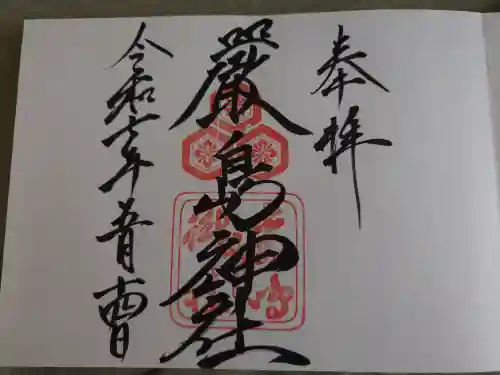 奉拝
嚴島神社
令和六年五月十四日